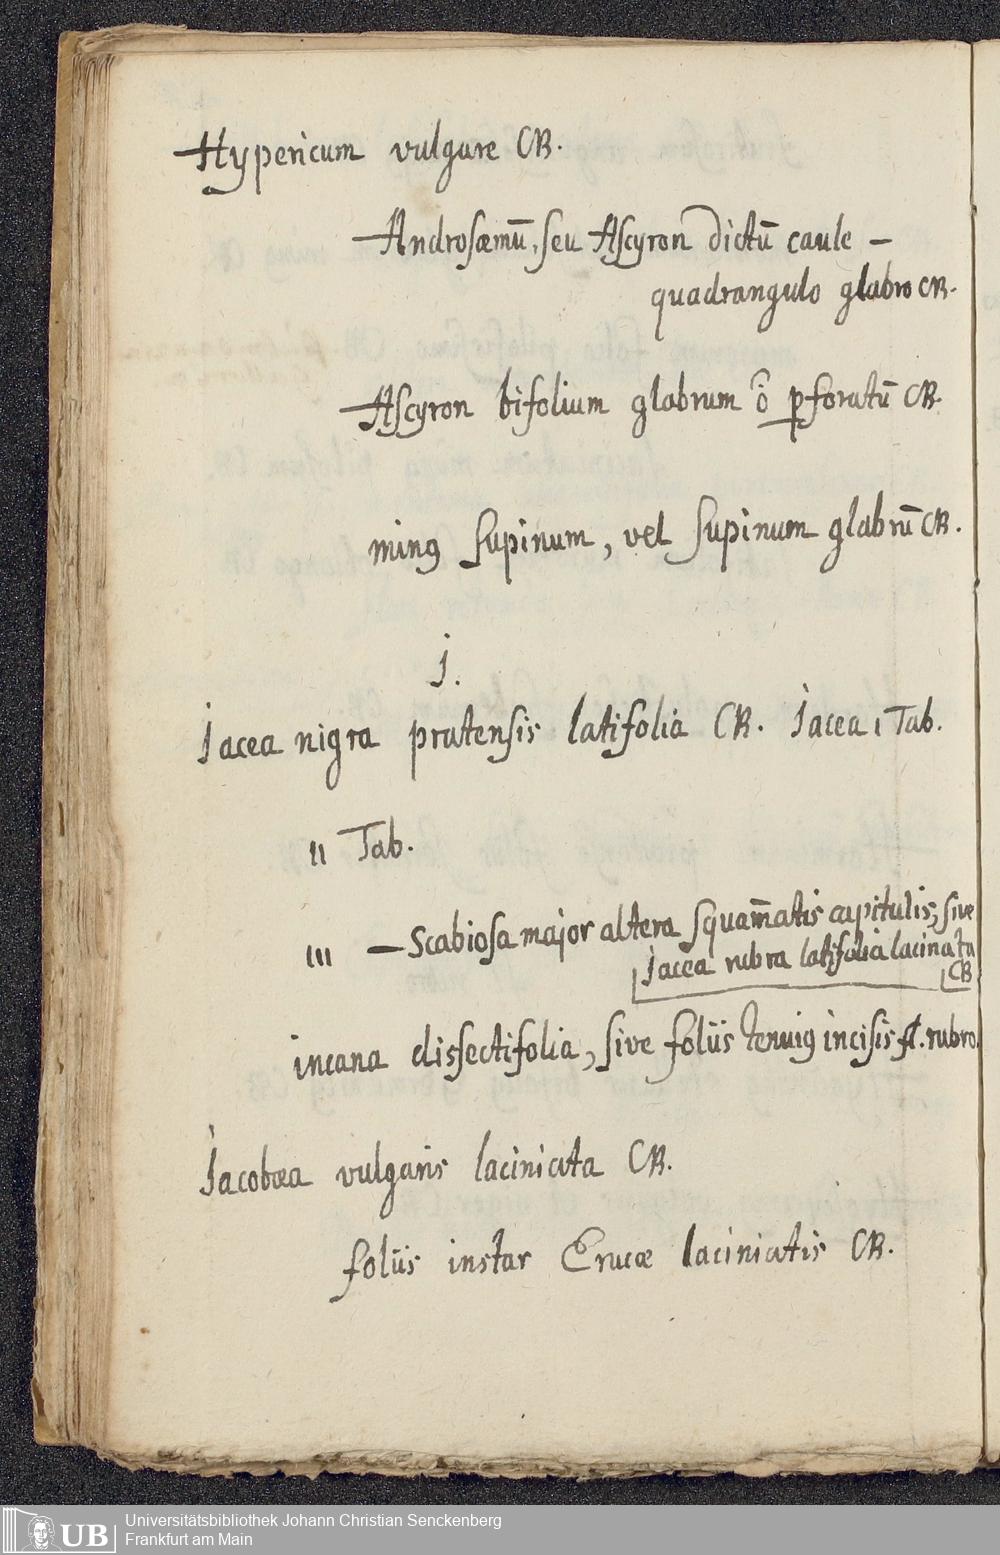 Hypericum vulgare CB.
Androsæmū, seu Ascyron dictū caule –
quadrangulo glabro CB.
Ascyron bifolium glabrum õ pforatū CB.
minꝰ supinum, vel supinum glabrū CB.
J.
Jacea nigra pratensis latifolia CB. Jacea 1 Tab.
11 Tab.
111 – Scabiosa major altera squam̄atis capitulis, sive
Jacea rubra latifolia lacinata
CB
incana dissectifolia, sive foliis tenuiꝰ incisis fl. rubro.
Jacobæa vulgaris laciniata CB.
foliis instar Erucæ laciniatis CB.
UB Universitätsbibliothek Johann Christian Senckenberg
Frankfurt am Main